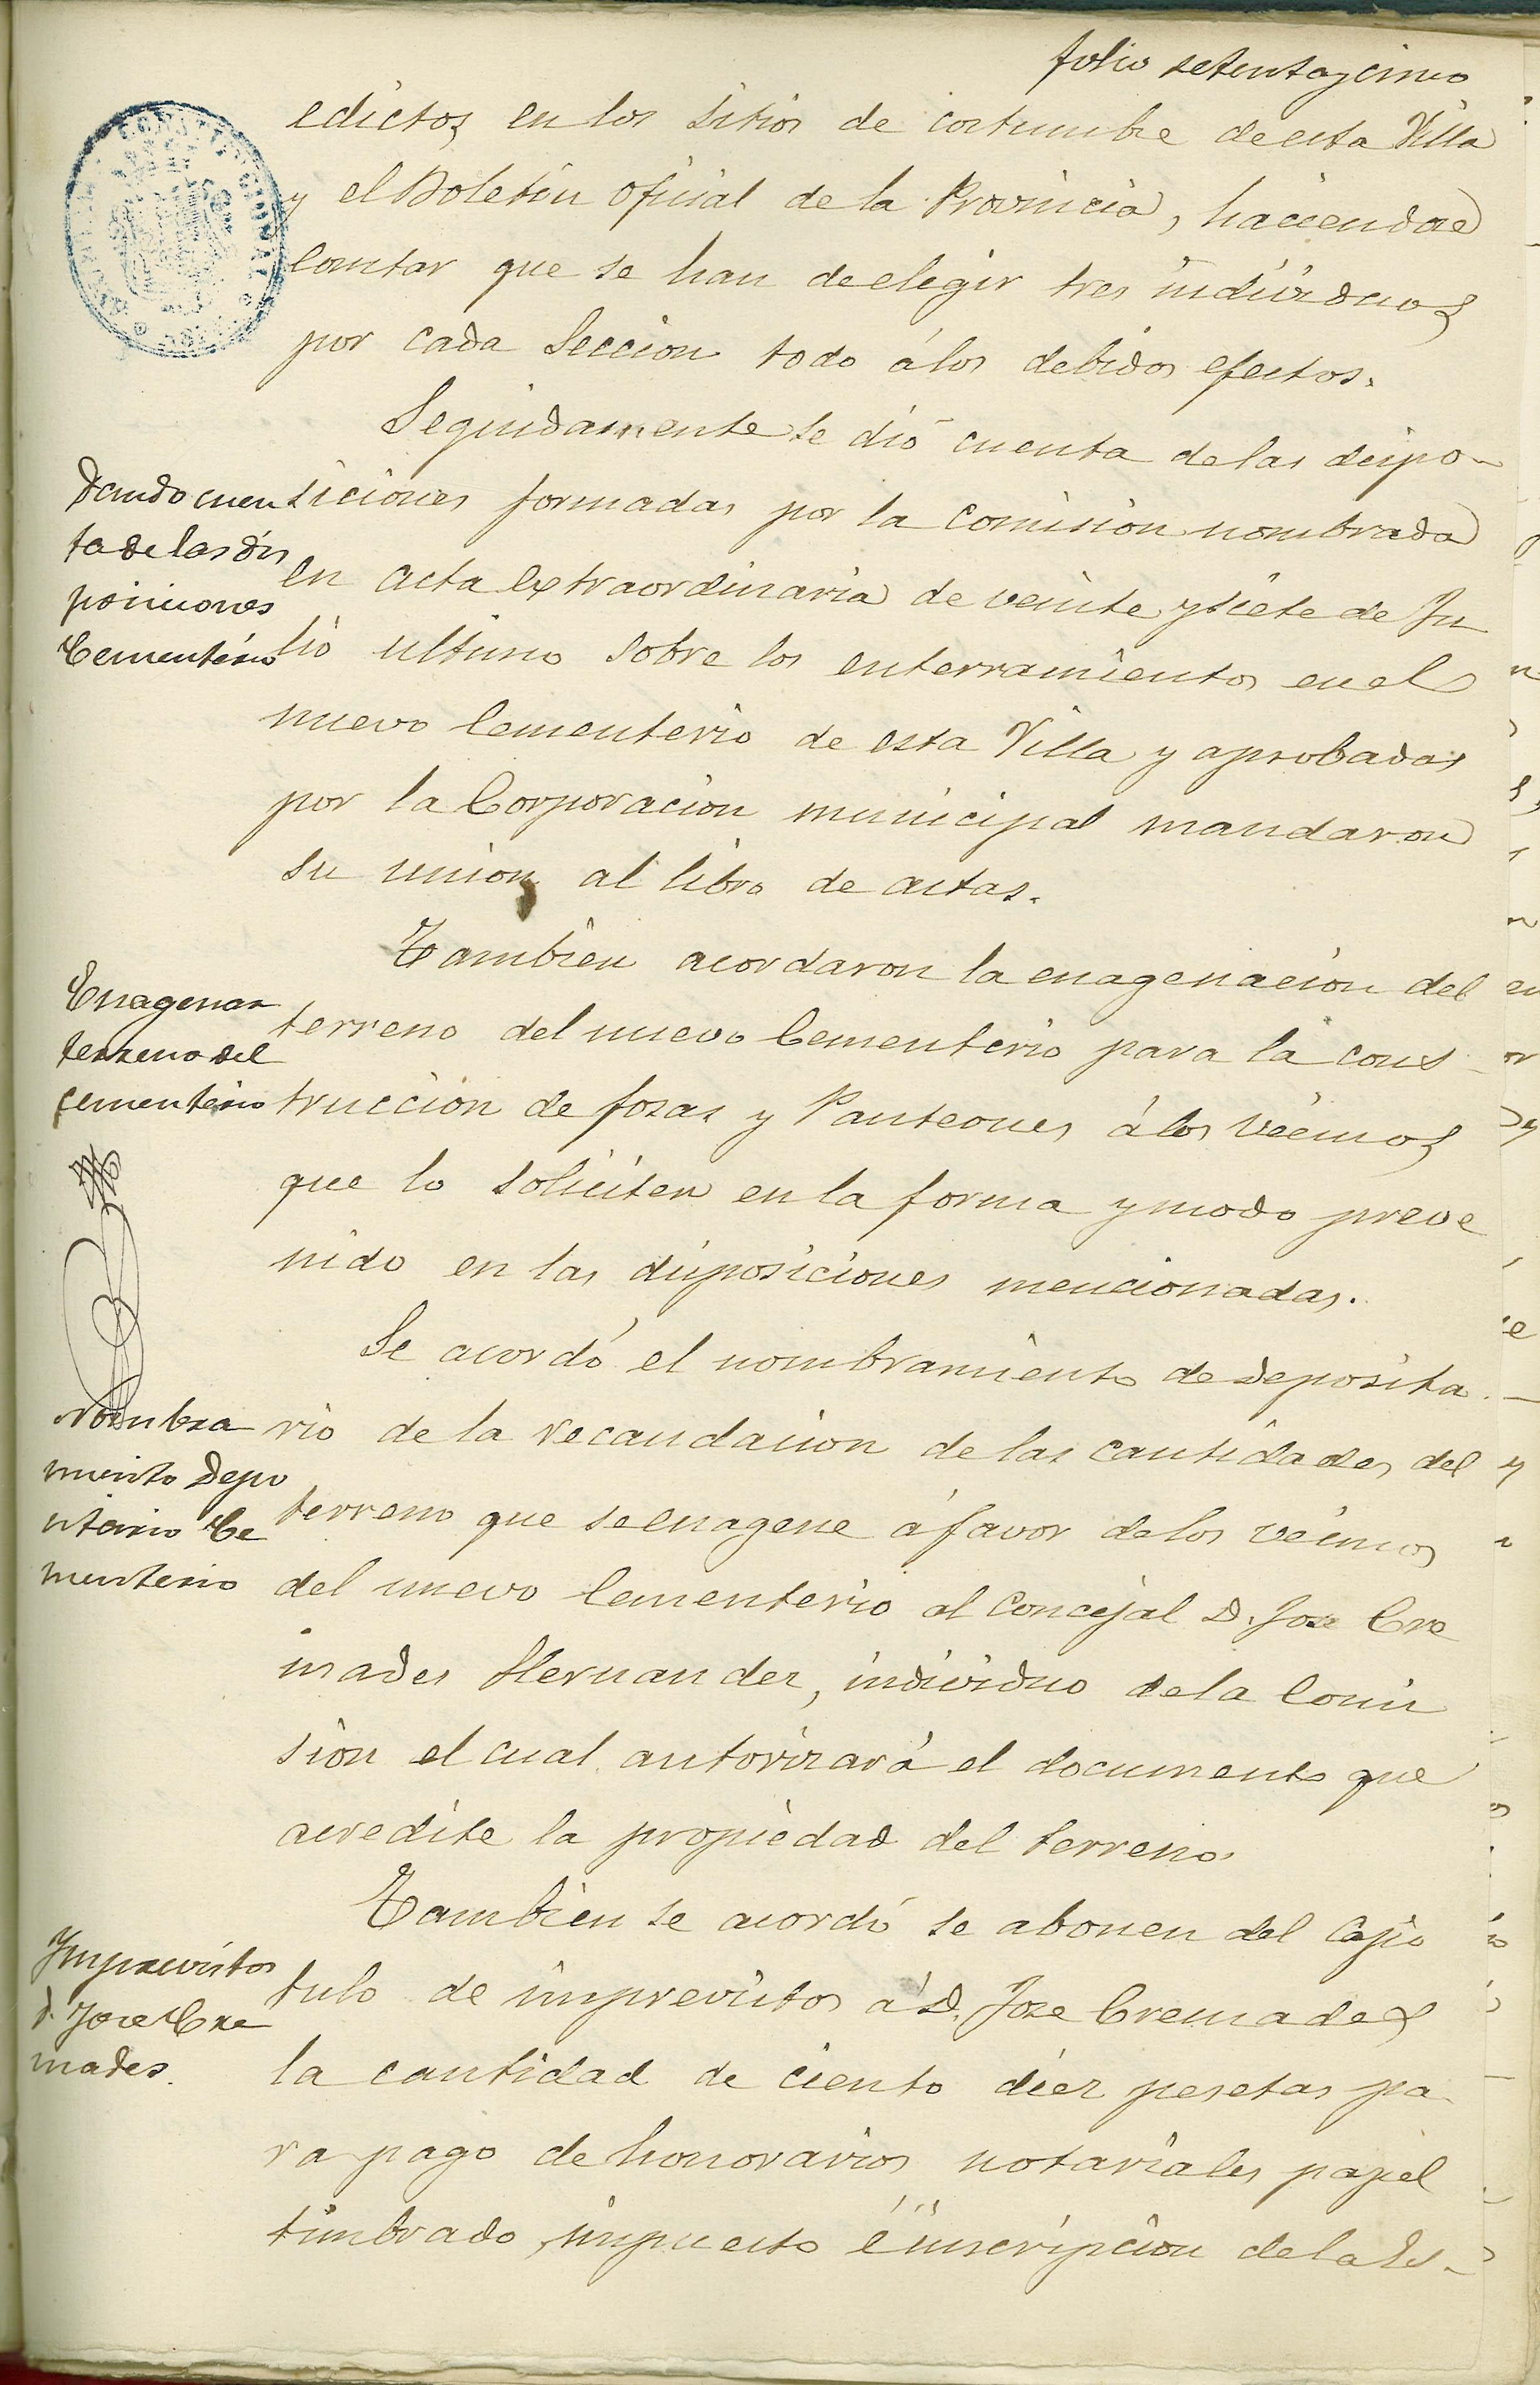 folio setenta y cinco
edictos en los sitios de costumbre de esta Villa
y el Boletin oficial de la Provincia, haciendose
constar que se han de elegir tres individuos
por cada Seccion todo á los debidos efectos.
Seguidamente se dió cuenta de las dispo-
Dando cuen
ta de las dis
posiciones
Cementerio
siciones formadas por la comision nombrada
en acta extraordinaria de veinte y siete de Ju
lio ultimo sobre los enterramientos en el
nuevo Cementerio de esta Villa y aprobadas
por la Corporacion municipal mandaron
su union al libro de actas.
Tambien acordaron la enagenacion del
Enagenar
terreno del
cementerio
terreno del nuevo Cementerio para la cons
truccion de fosas y Panteones á los vecinos
que lo soliciten en la forma y modo preve
nido en las disposiciones mencionadas.
Se acordó el nombramiento de Deposita
Nombra
miento Depo
sitario Ce
menterio
rio de la recaudacion de las cantidades del
terreno que se enagene á favor de los vecinos
del nuevo Cementerio al Concejal D. Jose Cre
mades Hernandez, individuo de la Comi
sion el cual autorizará el documento que
acredite la propiedad del terreno.
Tambien se acordó se abonen del Capi
Imprevistos
D. Jose Cre
mades.
tulo de imprevistos á D. Jose Cremades
la cantidad de ciento diez pesetas pa
ra pago de honorarios notariales papel
timbrado, impuesto é inscripcion de la Es-